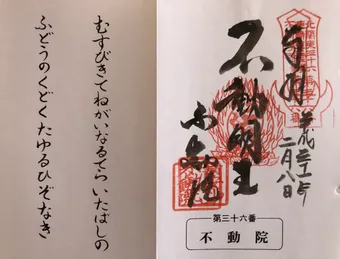 むすびきてねがいなるてらいたばしの
ふどうのくどくたゆるひぞなき
奉拝
平成三十一年
二月八日
不動明王
不動院
第三十六番
不動院